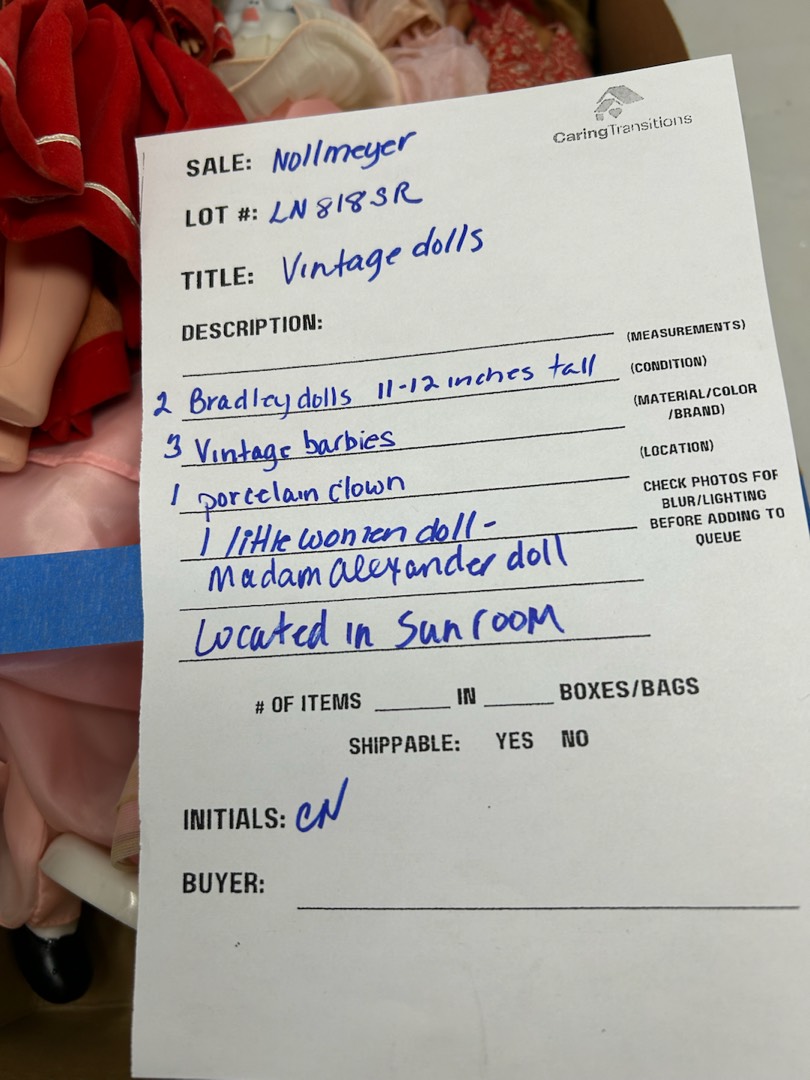 CaringTransitions
SALE: Nollmeyer
LOT #: LN 818 SR
TITLE: Vintage dolls
DESCRIPTION:
(MEASUREMENTS)
2 Bradley dolls 11-12 inches tall
(CONDITION)
3 Vintage barbies
(MATERIAL/COLOR
/BRAND)
1 porcelain clown
(LOCATION)
1 little women doll -
Madam alexander doll
CHECK PHOTOS FOR
BLUR/LIGHTING
BEFORE ADDING TO
QUEUE
Located in Sunroom
# OF ITEMS ______ IN ______ BOXES/BAGS
SHIPPABLE: YES NO
INITIALS: CN
BUYER: